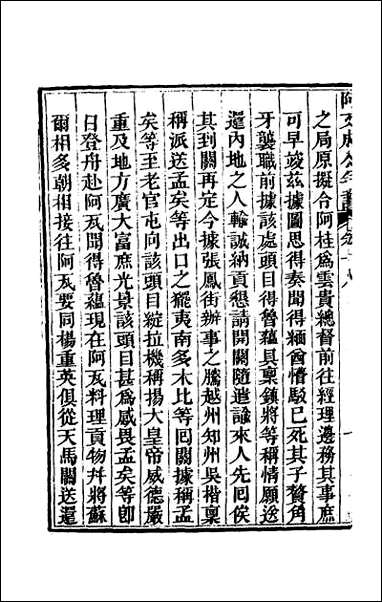 之局原擬合阿桂爲雲貴總督前往經理邊務其事庶
可早竣茲據圖思得奏聞得緬酋懵駁已死其子贅角
牙襲職前據該處頭目得魯蘊具稟鎮將等稱情願送
還內地之人輸誠納貢懇請開關隨遣諭來人先囘俟
其到關再定今據張鳳街辦事之騰越州知州吳楷稟
稱派送孟矣等出口之擺夷南多木比等囘關據稱孟
矣等至老官屯向該頭目綻拉機稱揚大皇帝威德嚴
重及地方廣大富庶光景該頭目甚爲感畏孟矣等卽
日登舟赴阿瓦聞得魯蘊現在阿瓦料理貢物幷將蘇
爾相多朝相接往阿瓦要同楊重英俱從天馬關送還
阿文成公年譜